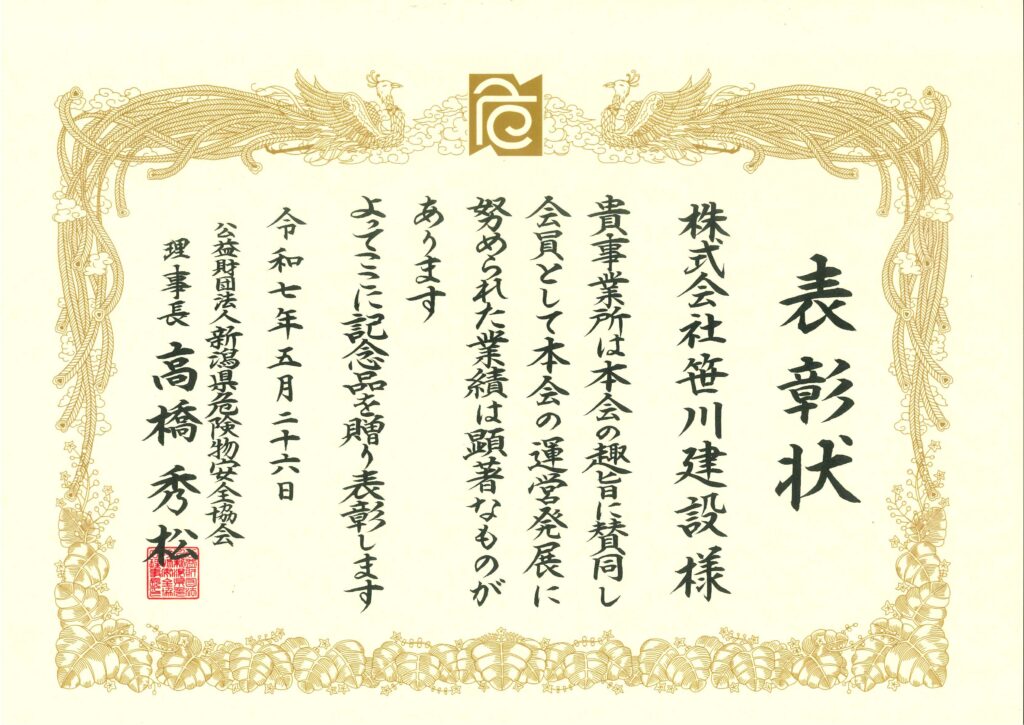 表彰状
株式会社笹川建設様
貴事業所は本会の趣旨に賛同し
会員として本会の運営発展に
努められた業績は顕著なものが
あります
よってここに記念品を贈り表彰します
令和七年五月二十六日
公益財団法人新潟県危険物安全協会
理事長高橋秀松